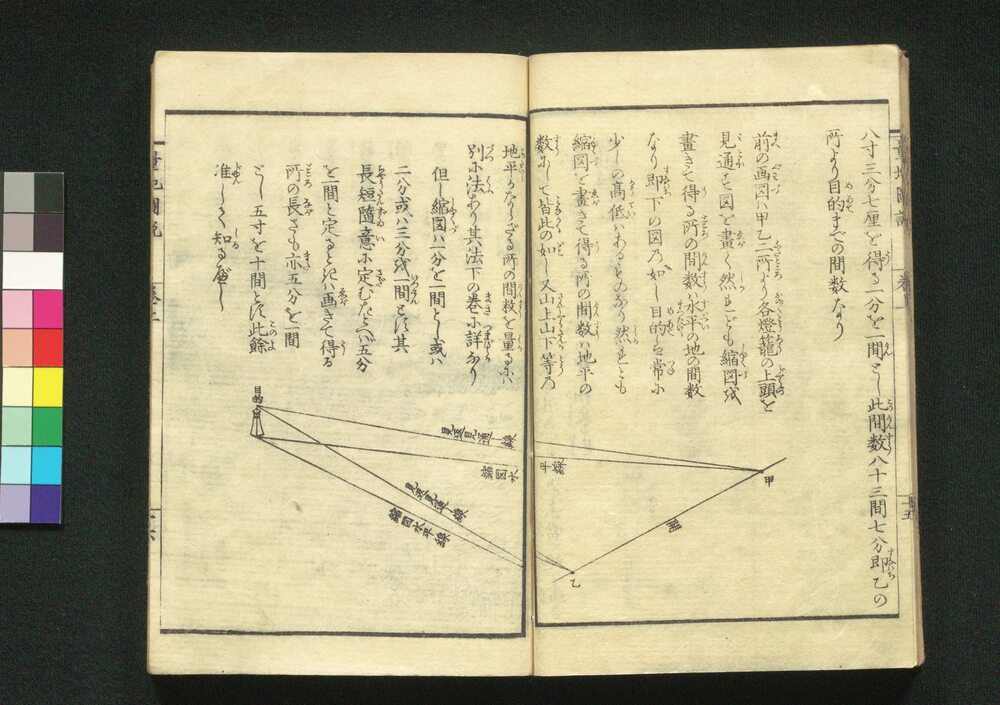 八寸三分七厘を得る一分を一間とし此間数八十三間七分即乙の
所より目的までの間数なり
前の画図ハ甲乙二所より各燈籠の上頭を
見通す図を畫く然れども縮図を
畫きて得る所の間数ハ水平の地の間数
なり即下の図乃如し目的と常に
少しの高低ハあるものなり然れども
縮図を畫きて得る所の間数ハ地平の
数にして皆此の如し又山上山下等乃
甲
間
乙
地平ならざる所の間数を量るにハ
別に法あり其法下の巻に詳なり
但し縮図ハ一分を一間とし或ハ
二分或ハ三分を一間とす其
長短随意に定むたとへバ五分
を一間と定るときハ画きて得る
所の長さも亦五分を一間
とし五寸を十間とす此餘
准して知るべし
目的
見通線
縮図水平線
見通線
縮図水平線
量地図説